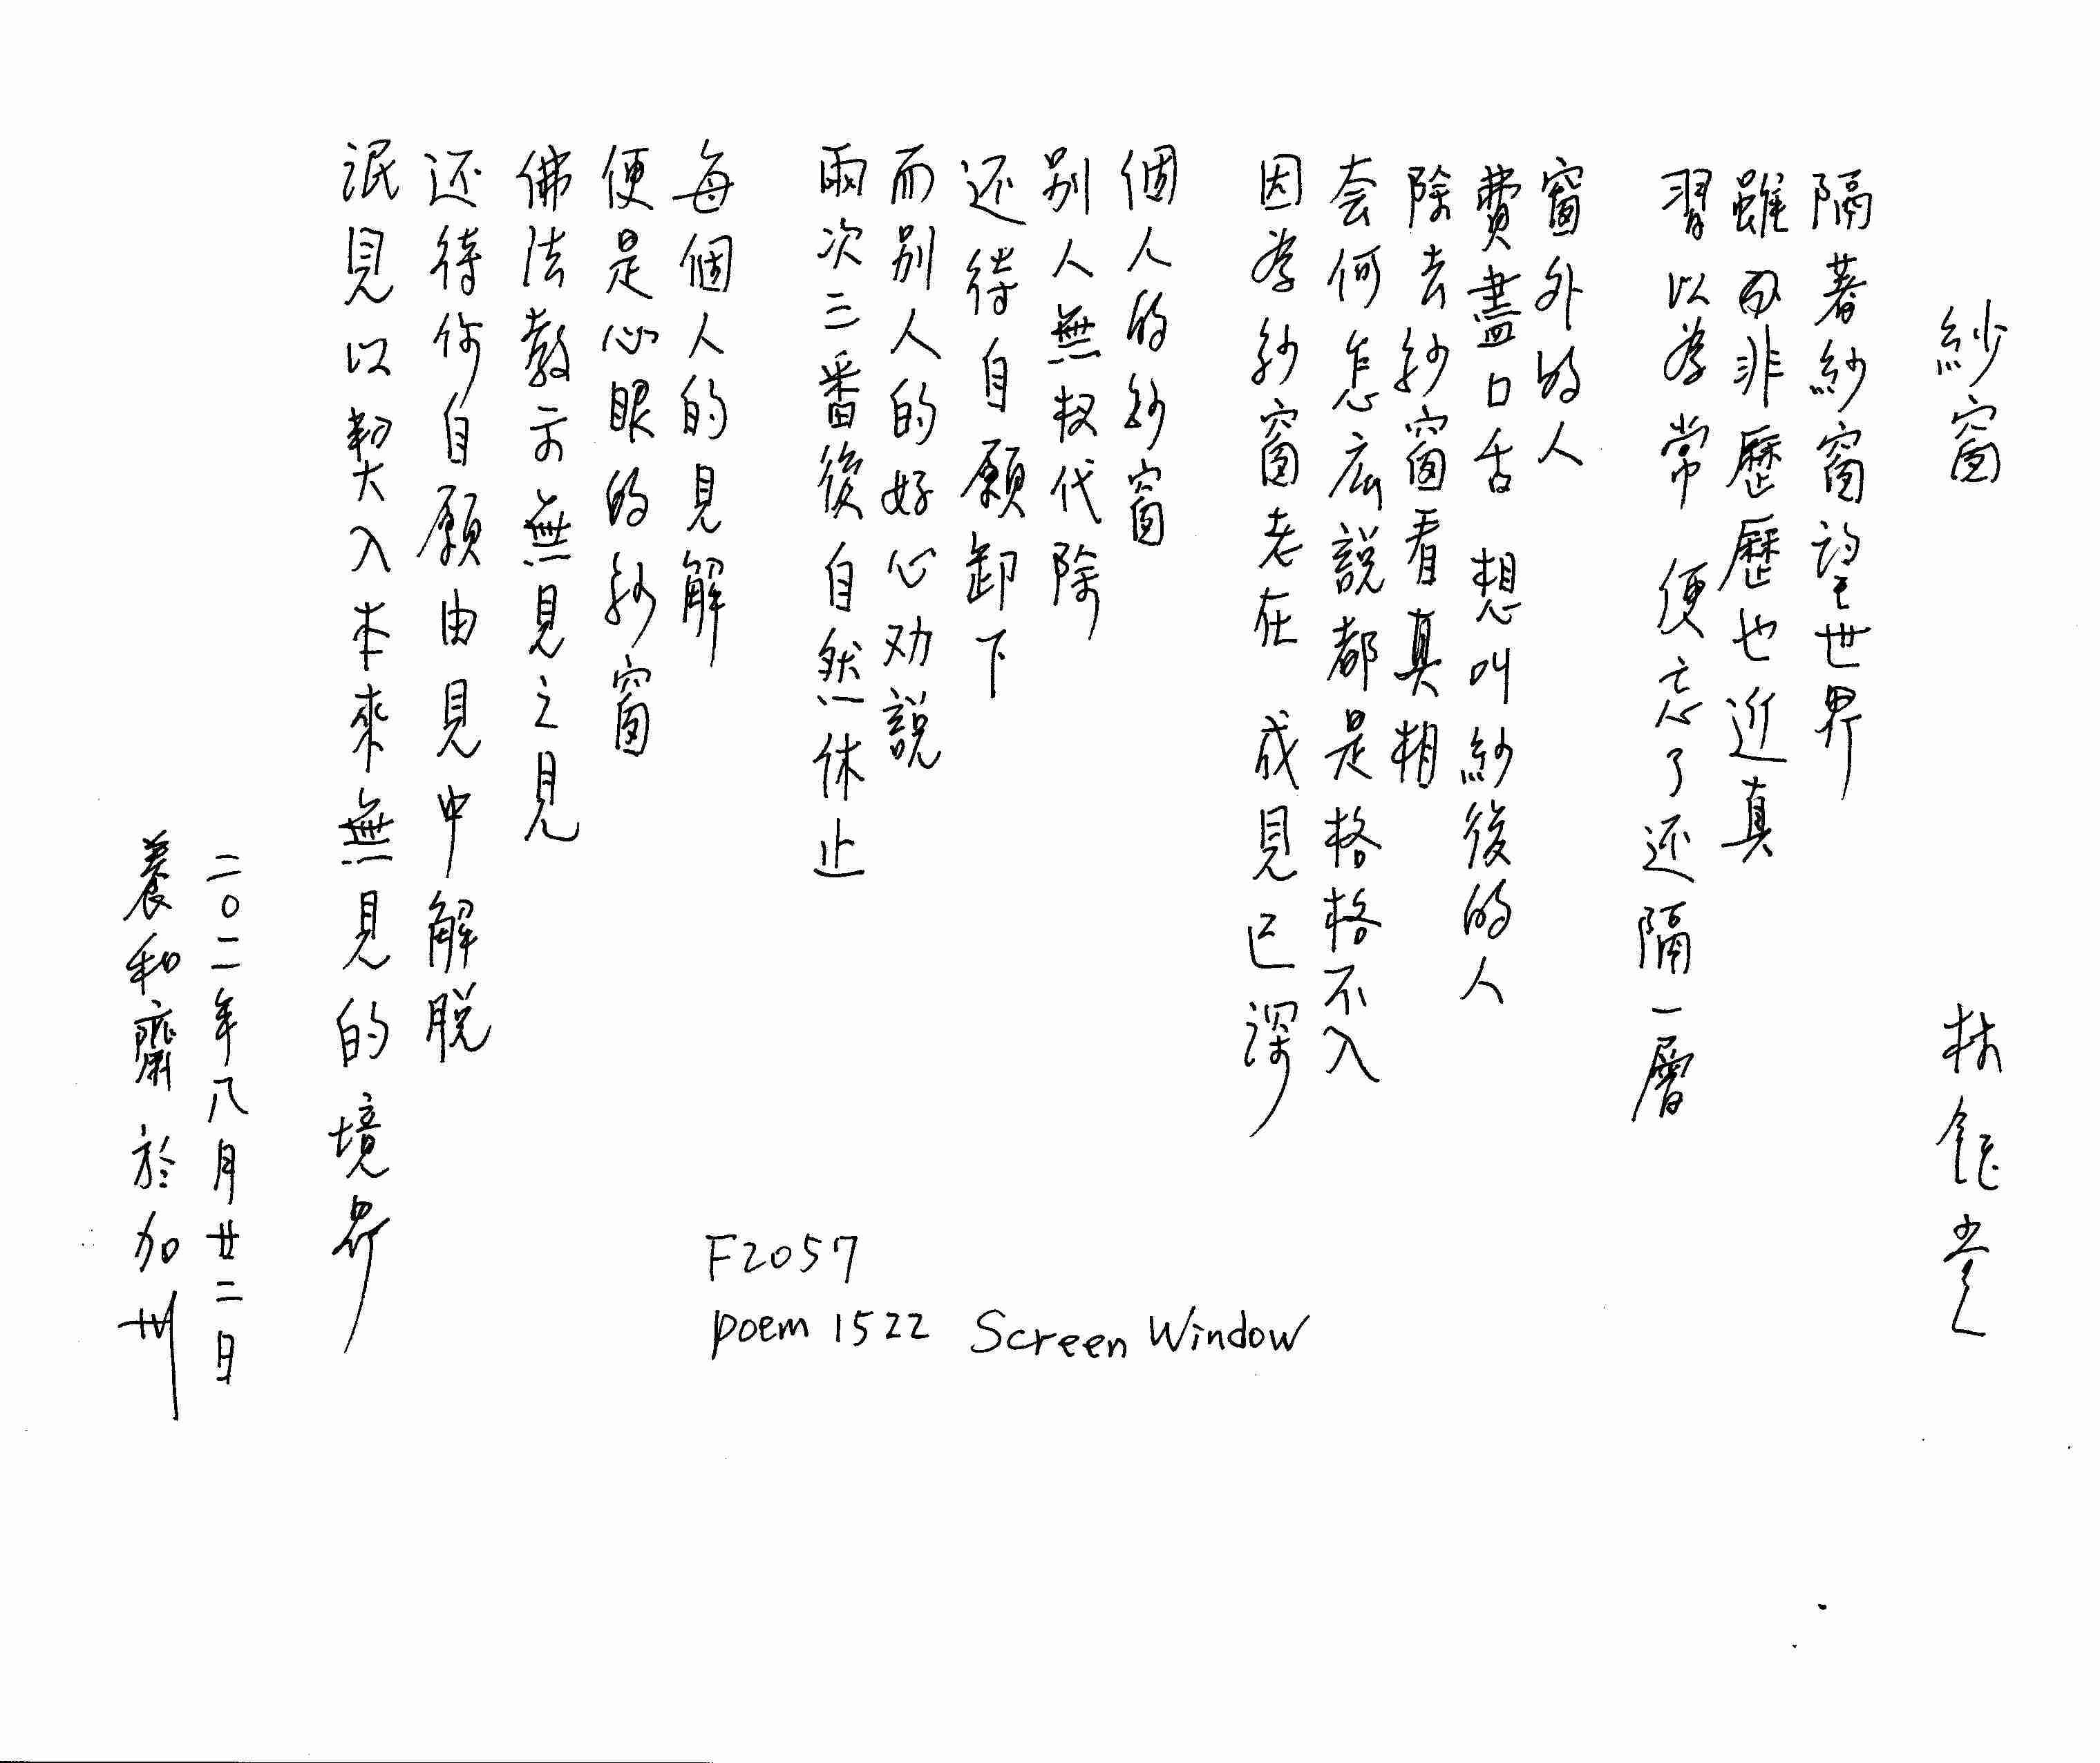 紗窗 林鈺堂
隔著紗窗望世界
雖而非歷歷也近真
習以為常 便忘了还隔一層
窗外的人
費盡口舌 想叫紗後的人
除去紗窗看真相
奈何怎底說都是格格不入
因為紗窗老在 成見已深
個人的紗窗
别人無权代除
还待自願卸下
而别人的好心劝說
兩次三番後自然休止
每個人的見解
便是心眼的紗窗
佛法教示無見之見
还待你自願由見中解脫
泯見以契入本來無見的境界
二〇二二年八月廿二日
養和齋於加州
F2057
poem 1522 Screen Window